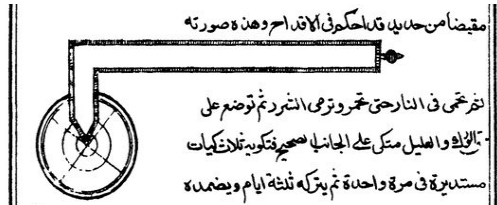 مقبضا من حديد قد احكم فى الاقداح وهذه صورته
ثم تحمى فى النار حتى تحمر وترمى الشرر ثم توضع على
الورك والعليل متكى على الجانب الصحيح فتكويه ثلاث كيات
مستديرة فى مرة واحدة ثم يتركه ثلثة ايام ويضمده